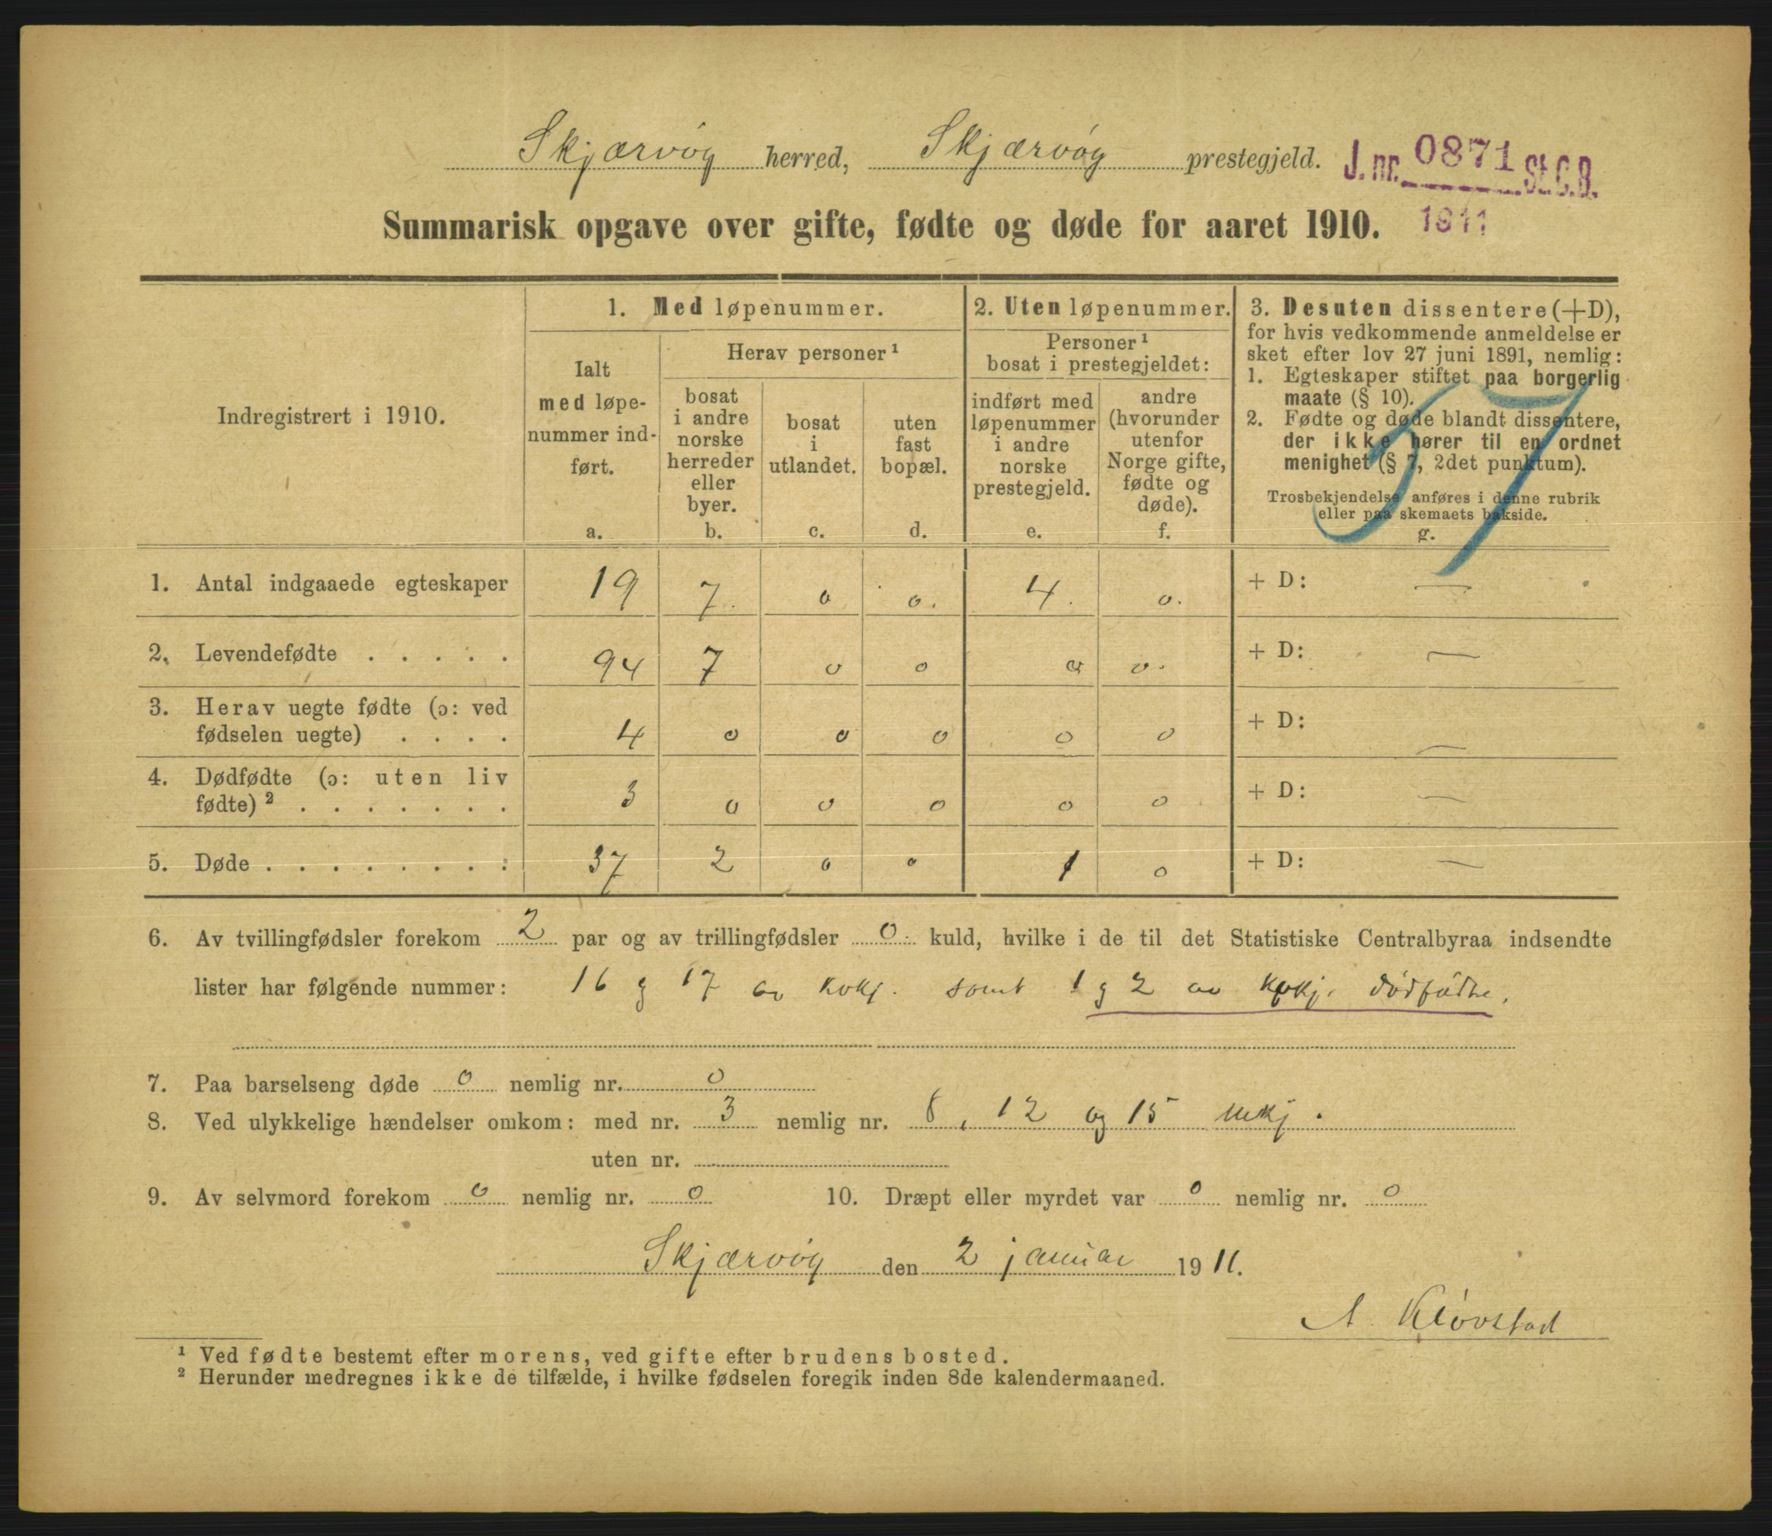 Skjærvøy herred, Skjærvøy prestegjeld. J. nr. 0871 St. C. B.
1911
Summarisk opgave over gifte, fødte og døde for aaret 1910.
Indregistrert i 1910.
1. Med løpenummer.
Ialt med løpenummer indført.
a.
Herav personer ¹
bosat i andre norske herreder eller byer.
b.
bosat i utlandet.
c.
uten fast bopæl.
d.
2. Uten løpenummer.
Personer ¹ bosat i prestegjeldet:
indført med løpenummer i andre norske prestegjeld.
e.
andre (hvorunder utenfor Norge gifte, fødte og døde).
f.
3. Desuten dissentere (+D),
for hvis vedkommende anmeldelse er
sket efter lov 27 juni 1891, nemlig:
1. Egteskaper stiftet paa borgerlig
maate (§ 10).
2. Fødte og døde blandt dissentere,
der ikke hører til en ordnet
menighet (§ 7, 2det punktum).
Trosbekjendelse anføres i denne rubrik
eller paa skemaets bakside.
g.
57
1. Antal indgaaede egteskaper 19 7. 0 0. 4. 0. + D: —
2. Levendefødte . . . . . 94 7 0 0 0 0. + D: —
3. Herav uegte fødte (ɔ: ved
fødselen uegte) . . . . 4 0 0 0 0 0 + D: —
4. Dødfødte (ɔ: uten liv
fødte) ² . . . . . . . 3 0 0 0 0 0 + D: —
5. Døde . . . . . . . . : 37 2 0 0 1 0 + D: —
6. Av tvillingfødsler forekom 2 par og av trillingfødsler 0. kuld, hvilke i de til det Statistiske Centralbyraa indsendte
lister har følgende nummer: 16 g 17 av kvkj. samt 1 g 2 av kvkj. dødfødte.
7. Paa barselseng døde 0 nemlig nr. 0
8. Ved ulykkelige hændelser omkom: med nr. 3 nemlig nr. 8, 12 og 15 mkj.
uten nr.
9. Av selvmord forekom 0 nemlig nr. 0 10. Dræpt eller myrdet var 0 nemlig nr. 0
Skjærvøy den 2 januar 1911.
A. Kløvstad
¹ Ved fødte bestemt efter morens, ved gifte efter brudens bosted.
² Herunder medregnes ikke de tilfælde, i hvilke fødselen foregik inden 8de kalendermaaned.